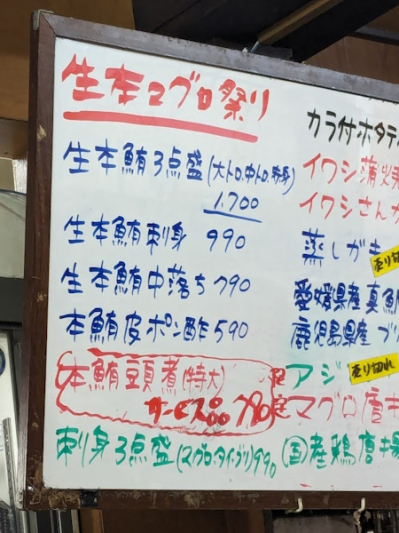 生本マグロ祭り
生本鮪3点盛(大トロ.中トロ.赤身)
1.700
生本鮪刺身 990
生本鮪中落ち 790
本鮪皮ポン酢 590
本鮪豆頁煮(特大)
サービス 790
刺身3点盛(マグロ・タイ・ブリ)990
カラ付ホタテ
イワシ蒲焼
イワシさんが
蒸しガキ
売り切
愛媛県産真鯛
鹿児島県産ブリ
アジ
売り切れ
マグロ唐
(国)産鶏唐揚